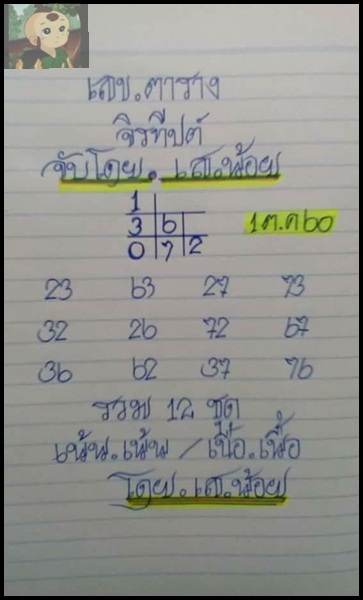 เลข.ตาราง
จิรทีปต์
จับโดย. เส.น้อย
1
3 6
0 7 2
1 ต.ค 60
23 63 27 73
32 26 72 67
36 62 37 76
รวม 12 ชุด
เน้น.เน้น / เนื้อ.เนื้อ
โดย.เส.น้อย